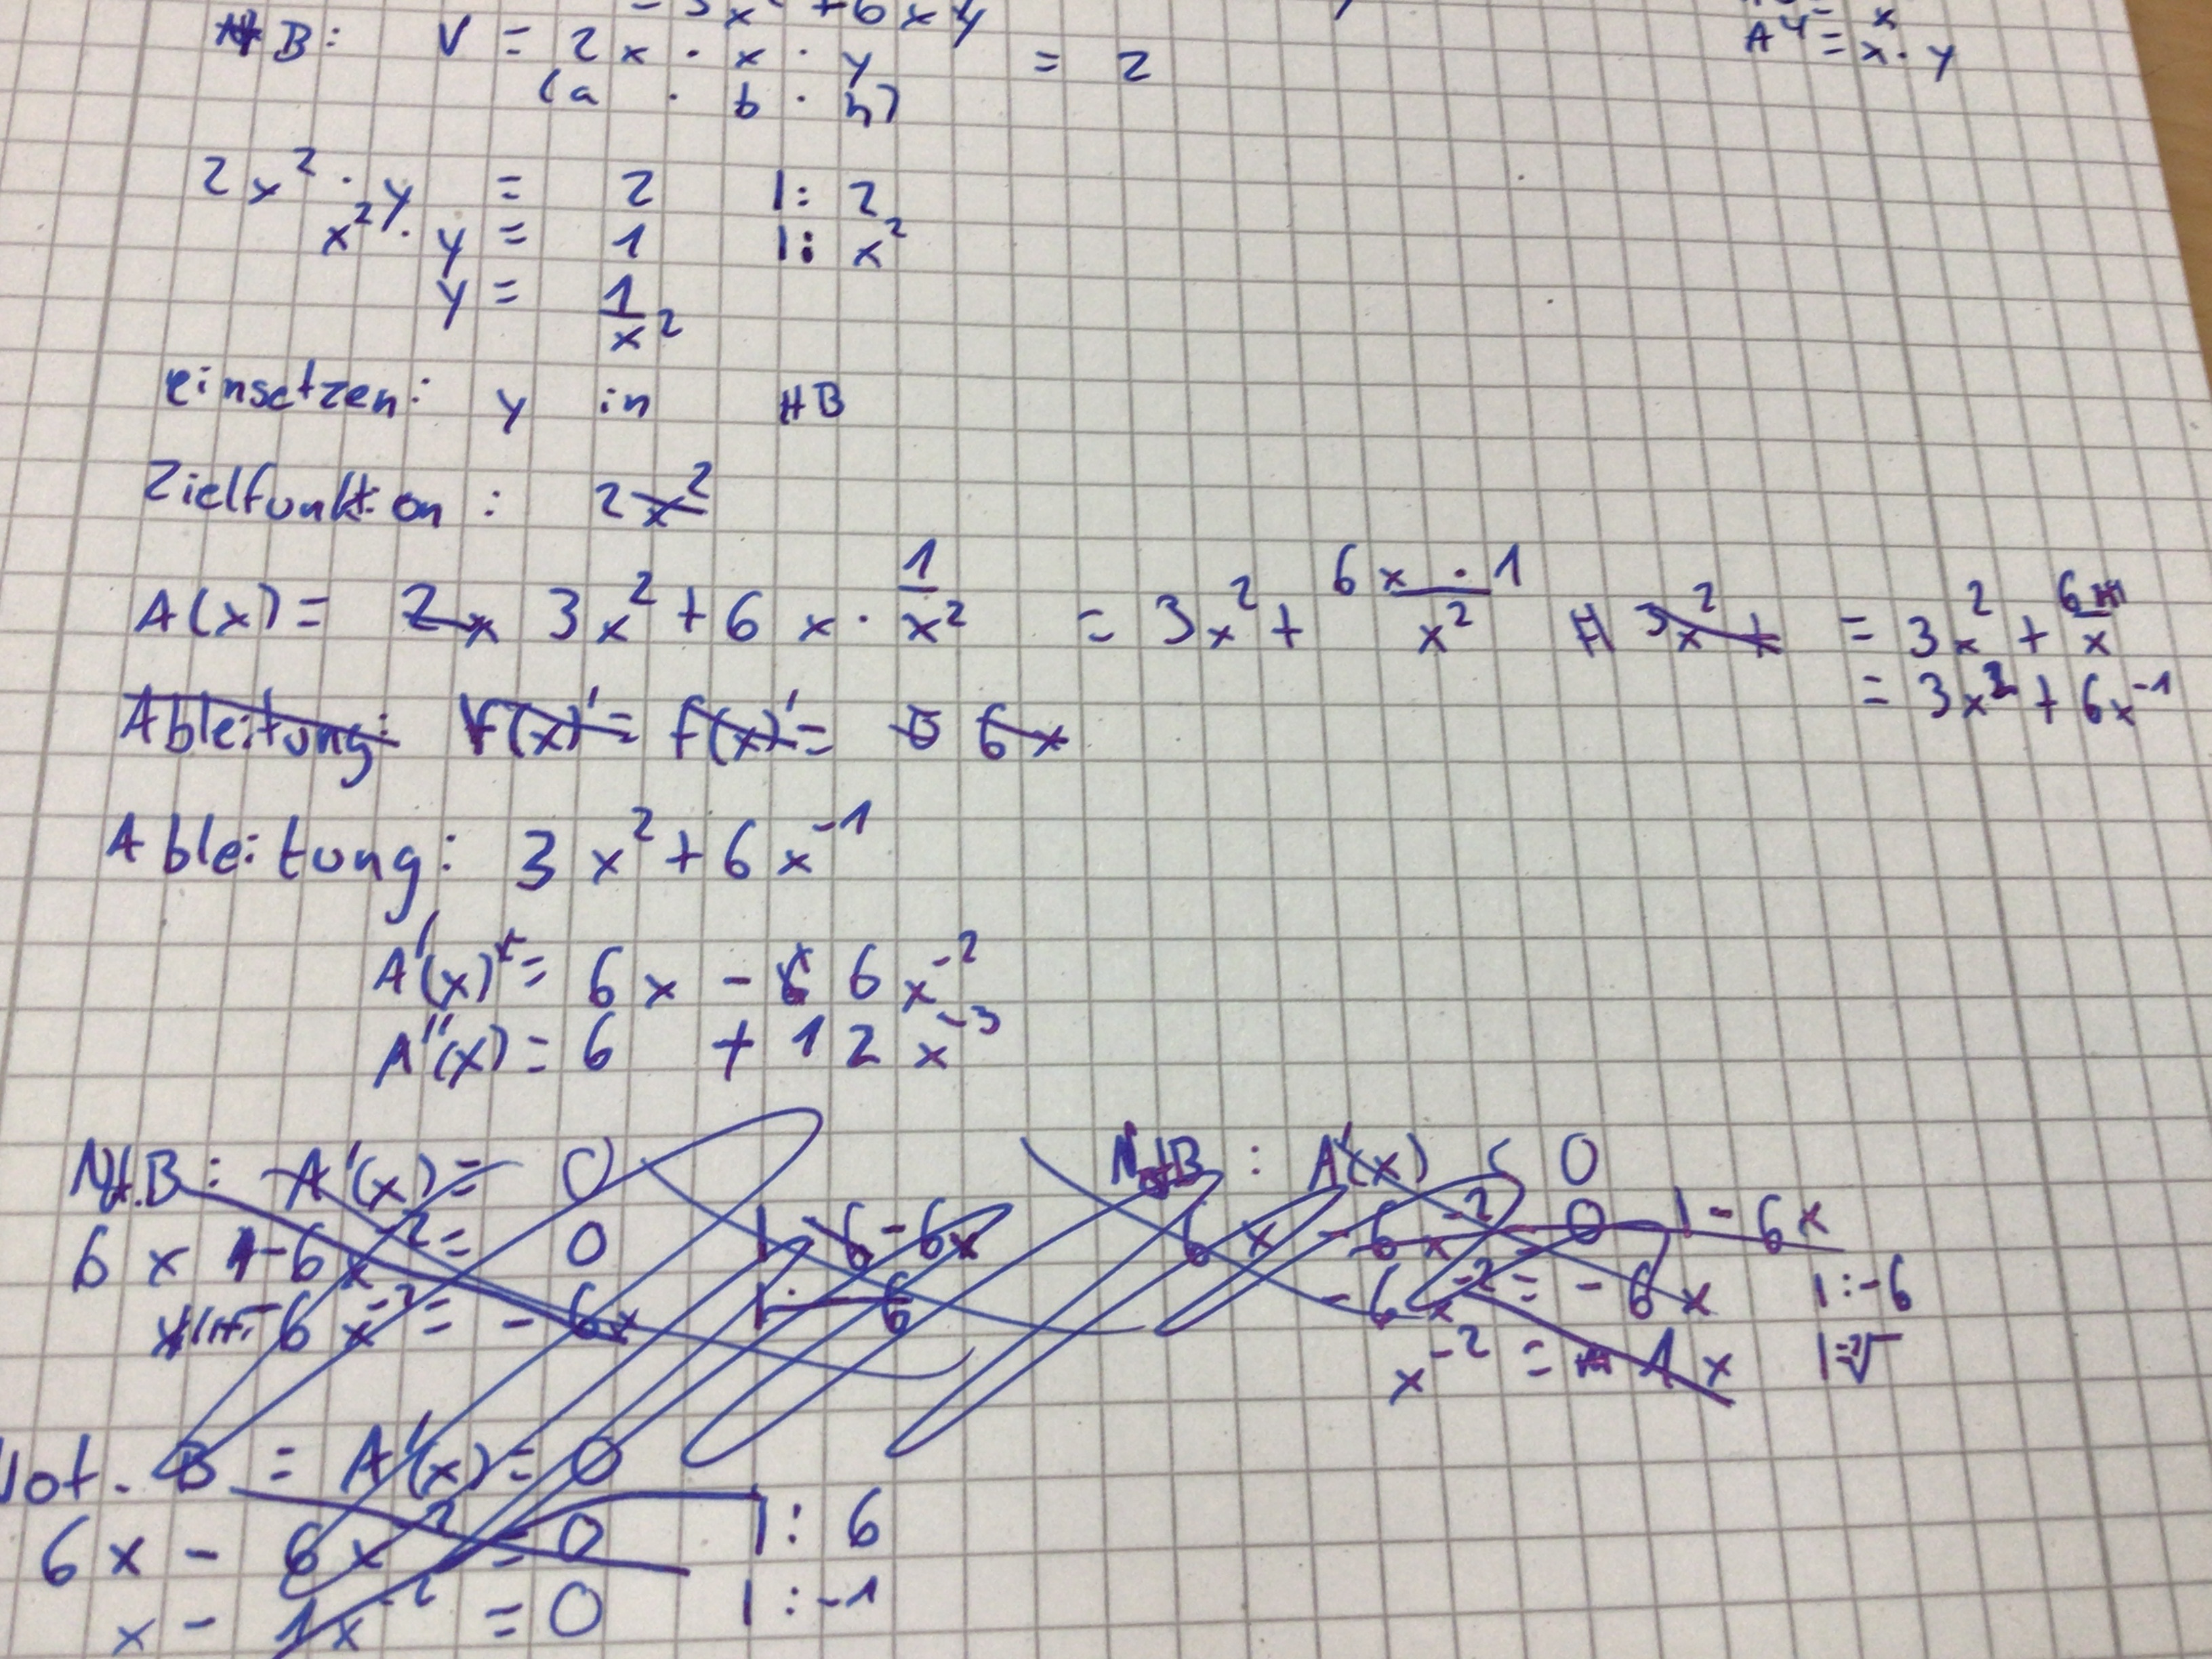 3x² + 6xy
B: V = 2x · x · y = 2
(a · b · h)
A4 = x · y
2x² · y = 2 |: 2
x² · y = 1 |: x²
y = 1/x²
einsetzen: y in HB
Zielfunktion: 2x²
A(x) = 2x 3x² + 6x · 1/x² = 3x² + 6x · 1/x² 3x² + = 3x² + 6/x
= 3x² + 6x⁻¹
Ableitung: f(x)' = f(x)' = 6x
Ableitung: 3x² + 6x⁻¹
A'(x) = 6x - 6x⁻²
A''(x) = 6 + 12x⁻³
Nt.B: A'(x) = 0
6x - 6x⁻² = 0 | - 6x
- 6x⁻² = - 6x |: 6
NotB: A'(x) = 0
6x - 6x⁻² = 0 | - 6x
- 6x⁻² = - 6x |: -6
x⁻² = 1x
Not. B = A'(x) = 0
6x - 6x⁻² = 0 |: 6
x - 1x⁻² = 0 |: -1